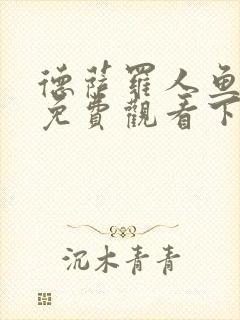 德薩羅人魚
免費觀看下
沉木青青